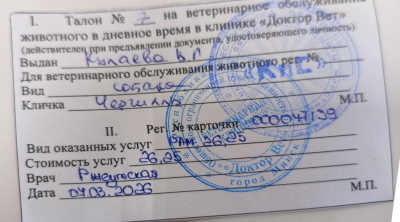 I. Талон № 7 на ветеринарное обслуживание
животного в дневное время в клинике «Доктор Вет»
(действителен при предъявлении документа, удостоверяющего личность)
Выдан
Для ветеринарного обслуживания животного рег. №
Вид собака
Кличка Черчилль
М.П.
II. Рег. № карточки 000047139
Вид оказанных услуг 26,25
Стоимость услуг 26,25
Врач
Дата 07.03.2026 М.П.
«Доктор Вет»
город Минск